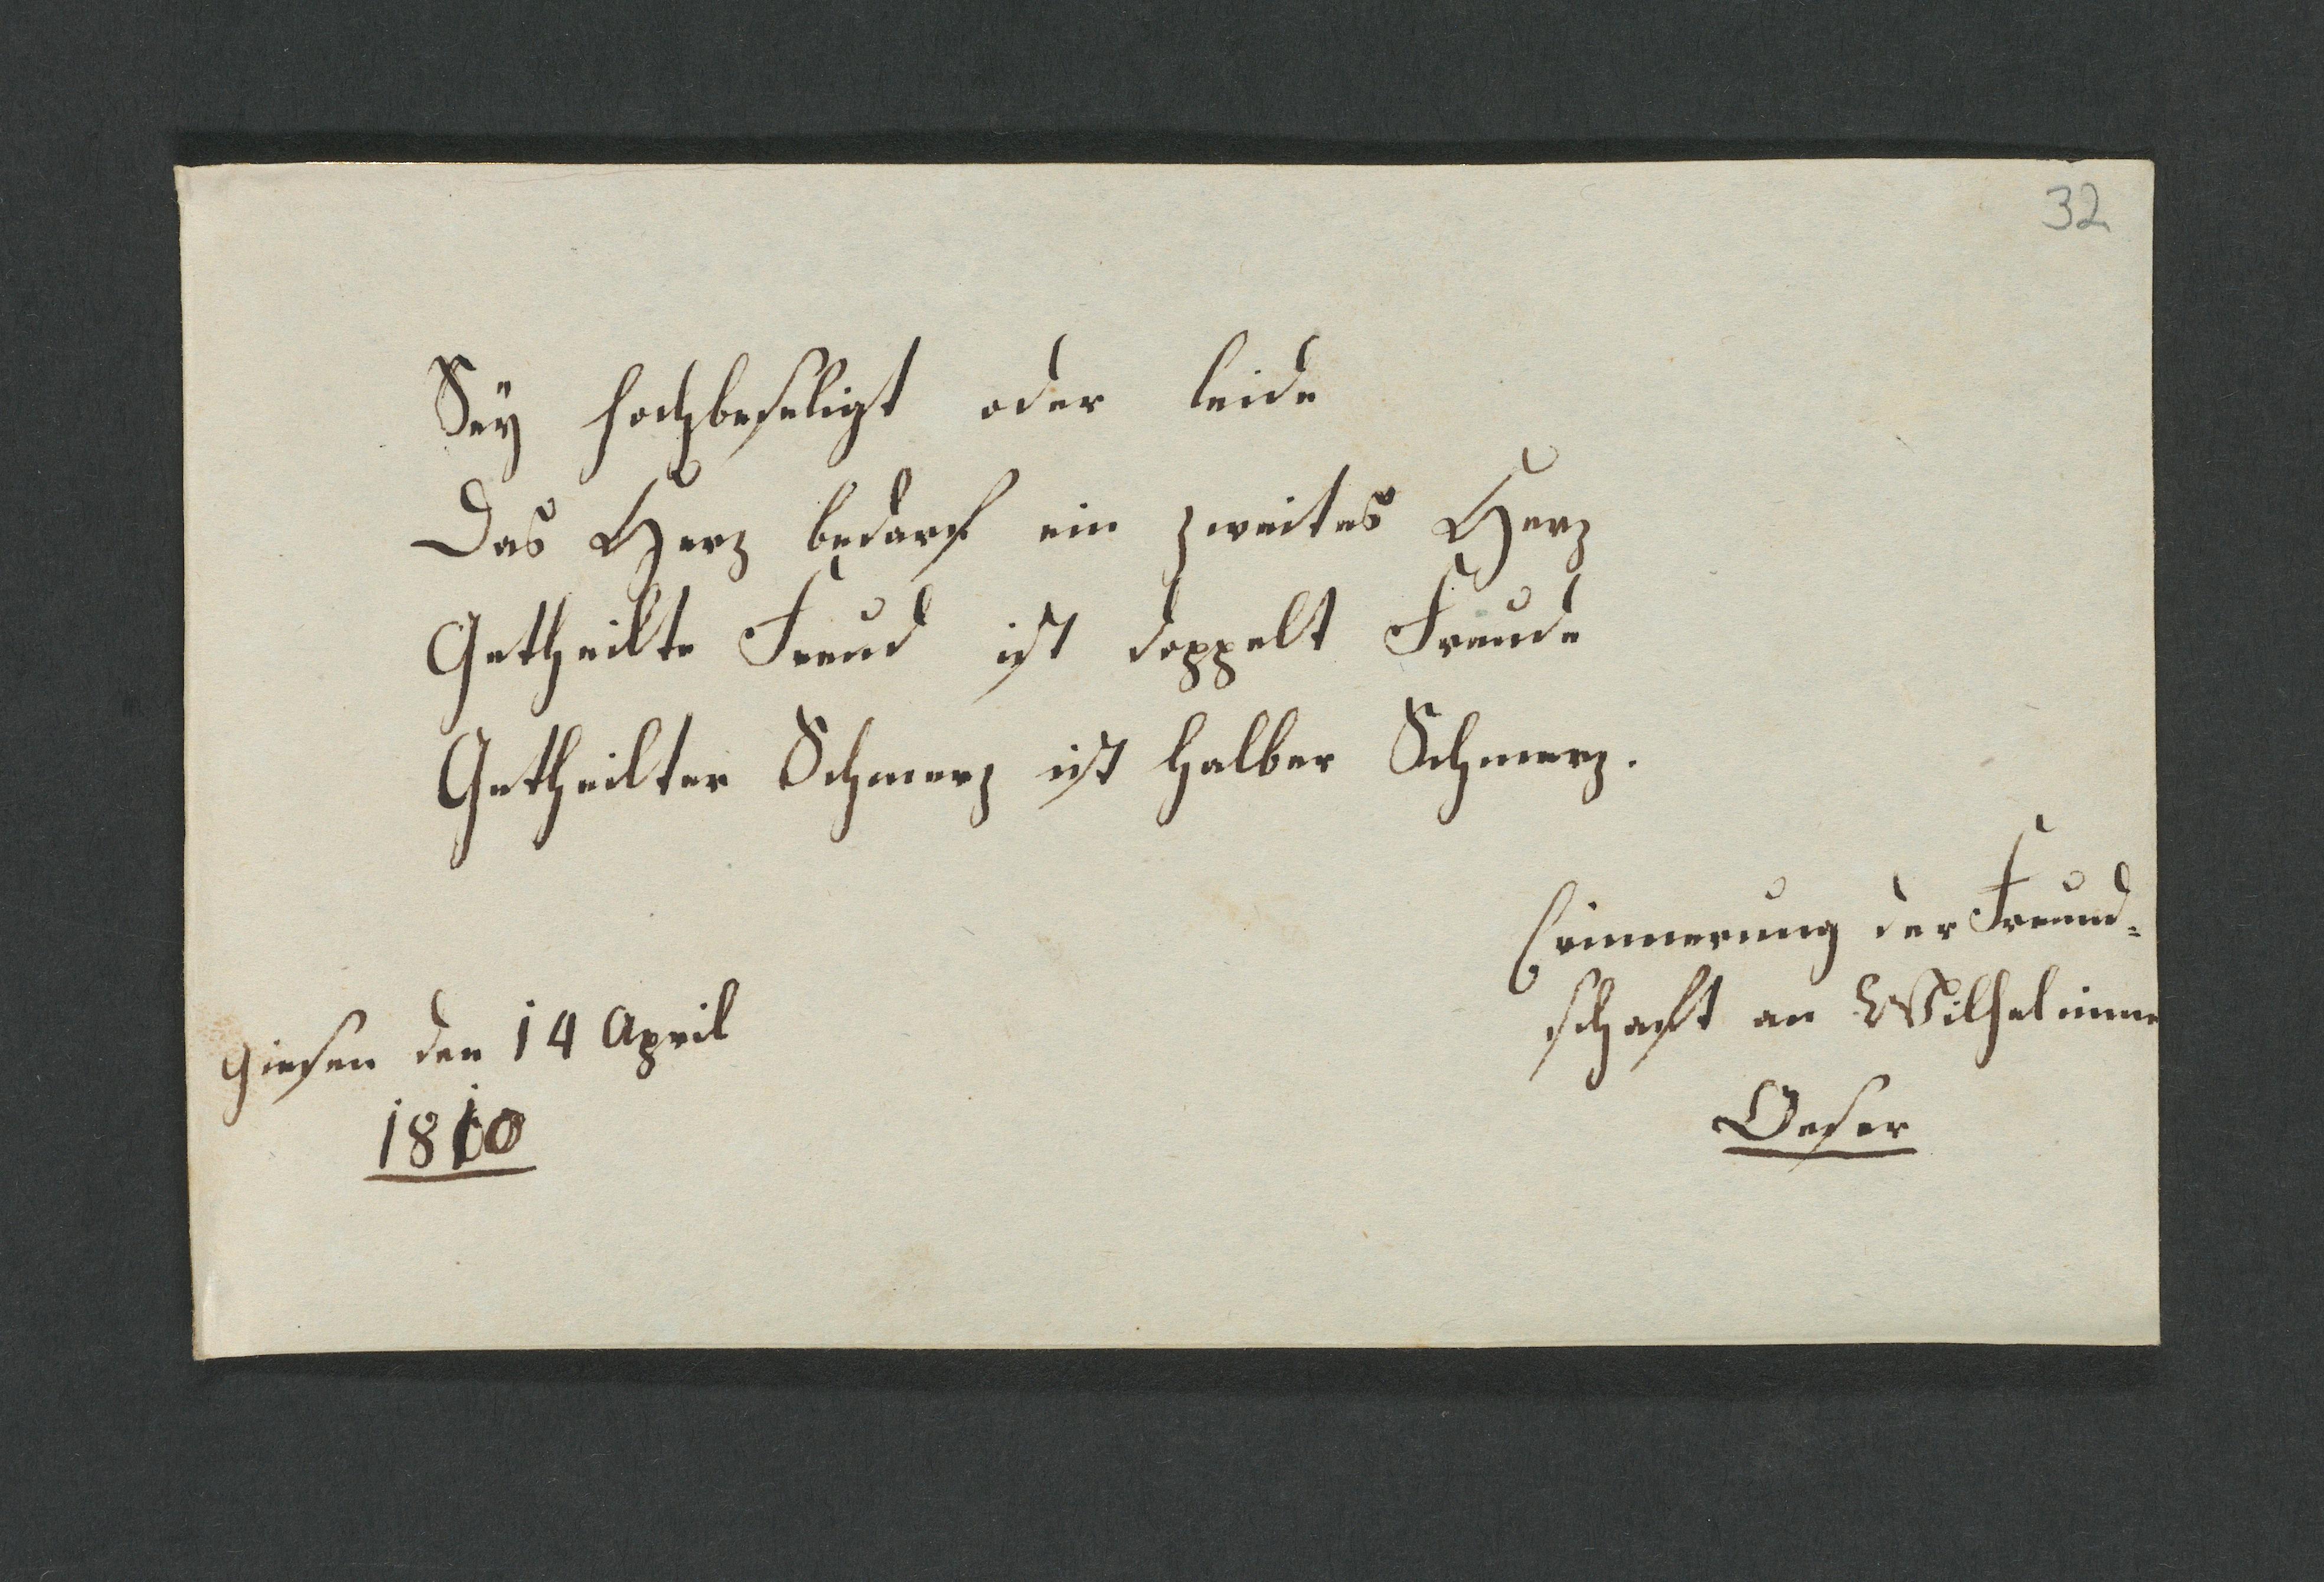 32
Seÿ hochbeseligt oder leide
Das Herz bedarf ein zweites Herz
Getheilte Freud ist doppelt Freude
Getheilter Schmerz ist halber Schmerz.
Erinnerung der Freund=
schaft an Wilhelmine
Oeser
Giesen den 14 April
1810